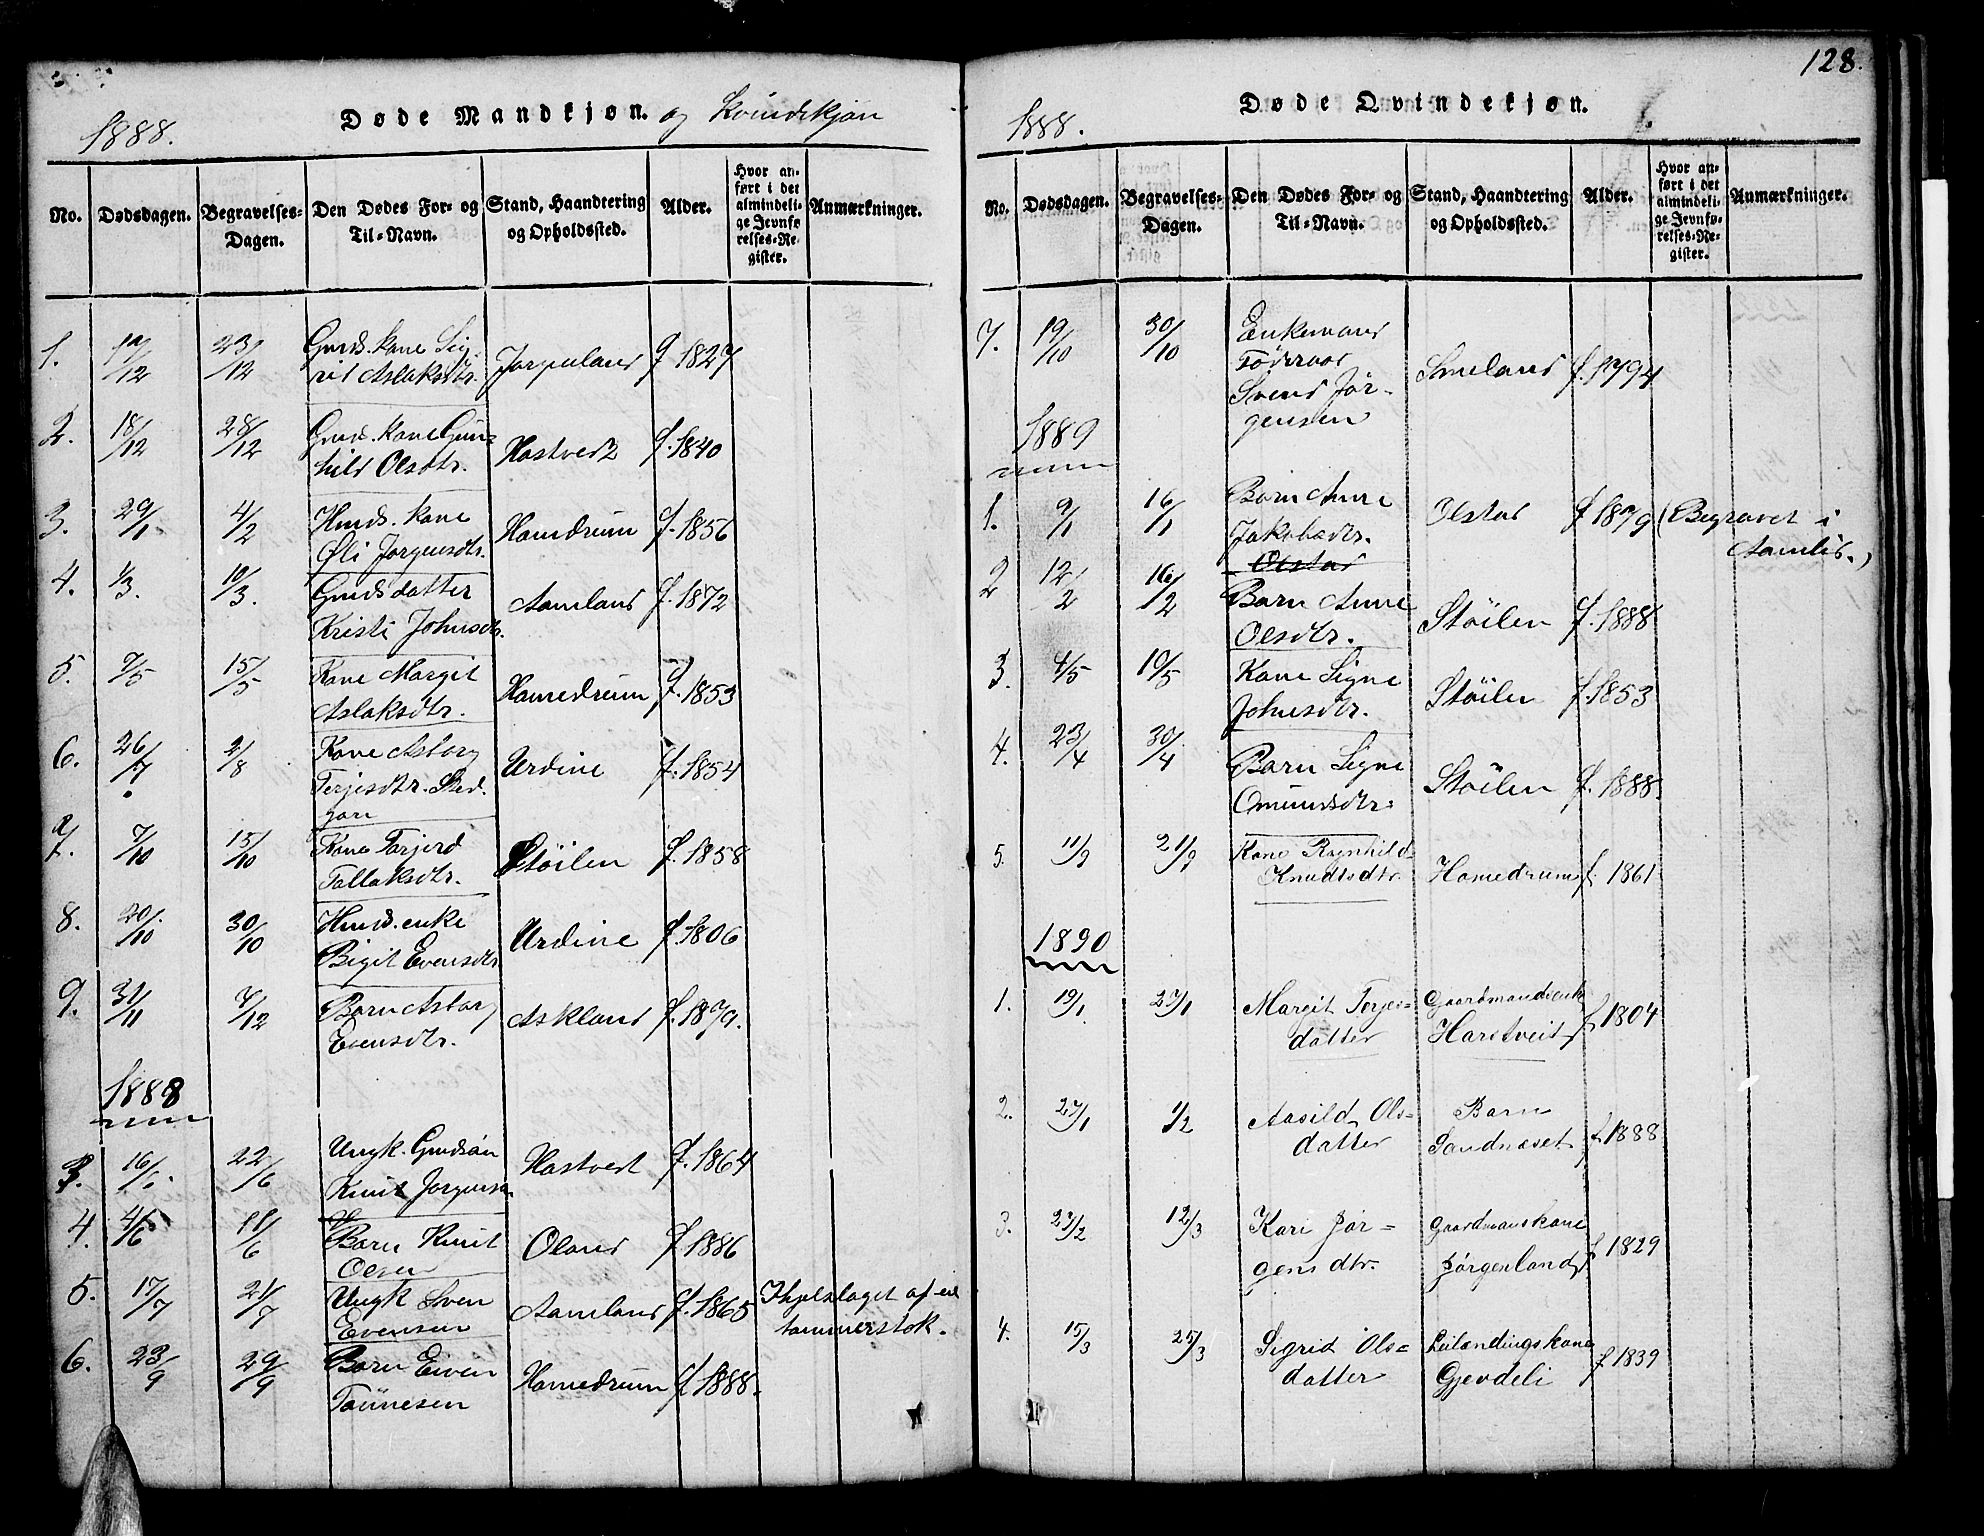 128.
1888.
Døde Mandkjøn. og Kvindekjøn
No. Dødsdagen. Begravelses-Dagen. Den Dødes For- og Til-Navn. Stand, Haandtering og Opholdssted. Alder. Hvor anført i det almindelige Jevnførelses-Register. Anmærkninger.
1. 17/12 23/12 Grds. kone Sig-
rid Aslaksdtr. Jorgenland f 1827
2. 18/12 28/12 Grds. kone Gun-
hild Olsdtr. Hastvedt f. 1840
3. 29/1 4/2 Hmds. kone
Øli Jorgensdtr. Hamdrum f. 1856
4. 1/3. 10/3. Grds datter
Kristi Johnsdtr. Aamland f. 1872
5. 7/5 15/5 Kone Margit
Aslaksdtr. Hamedrum f. 1853
6. 26/7. 2/8 Kone Asborg
Terjesdtr. Urdine f. 1854
7. 7/10 15/10 Kone Torjerd
Tallaksdtr. Støilen f. 1858
8. 20/10 30/10 Hmds. enke
Bigit Evensdtr Urdine f. 1806
9. 7/12 Barn Asborg
Evensdtr. Askland f. 1879.
1888
3. 16/6 22/6 Ungk. Grdsøn
Knut Jorgensen Hastvedt f. 1864
4. 4/6 11/6 Barn Knut
Olsen Oland f 1886
5. 17/7 21/7 Ungk Sven
Evensen Aamland f. 1865 Ihjelslaget af en
tømmerstok.
6. 23/9 29/9 Barn Eiven
Tønnesen Hamedrum f 1888.
1888.
Døde Qvindekjøn.
No. Dødsdagen. Begravelses-Dagen. Den Dødes For- og Til-Navn. Stand, Haandtering og Opholdssted. Alder. Hvor anført i det almindelige Jevnførelses-Register. Anmærkninger.
7. 19/10 30/10 Enkemand
Føderaad
Svend Jør-
gensen Smeland f. 1794
1889
1. 9/1 16/1 Barn Anne
Jakobsdtr.
Olstad Olstad f 1879 (Begravet i
Aamlid.)
2 12/2 16/2 Barn Anne
Olsdtr. Støilen f. 1888
3. 4/5 10/5 Kone Signe
Johnsdtr. Støilen f. 1853
4. 23/4 30/4 Barn Signe
Omundsdtr. Støilen f. 1888.
5. 11/9 21/9 Kone Ragnhild
Knudtsdtr. Hamedrum f 1861
1890
1. 19/1 27/1 Margit Terjes-
datter Gaardmandsenke
Harstveit f 1804
2. 27/1 1/2 Aasild Ols-
datter Barn
Sandnæset f 1888
3. 27/2 12/3 Kari Jør-
gensdtr. Gaardmanskone
Jørgenland f 1829
4. 15/3 25/3 Sigrid Ols-
datter Leilændingskone
Gjevdeli f 1839